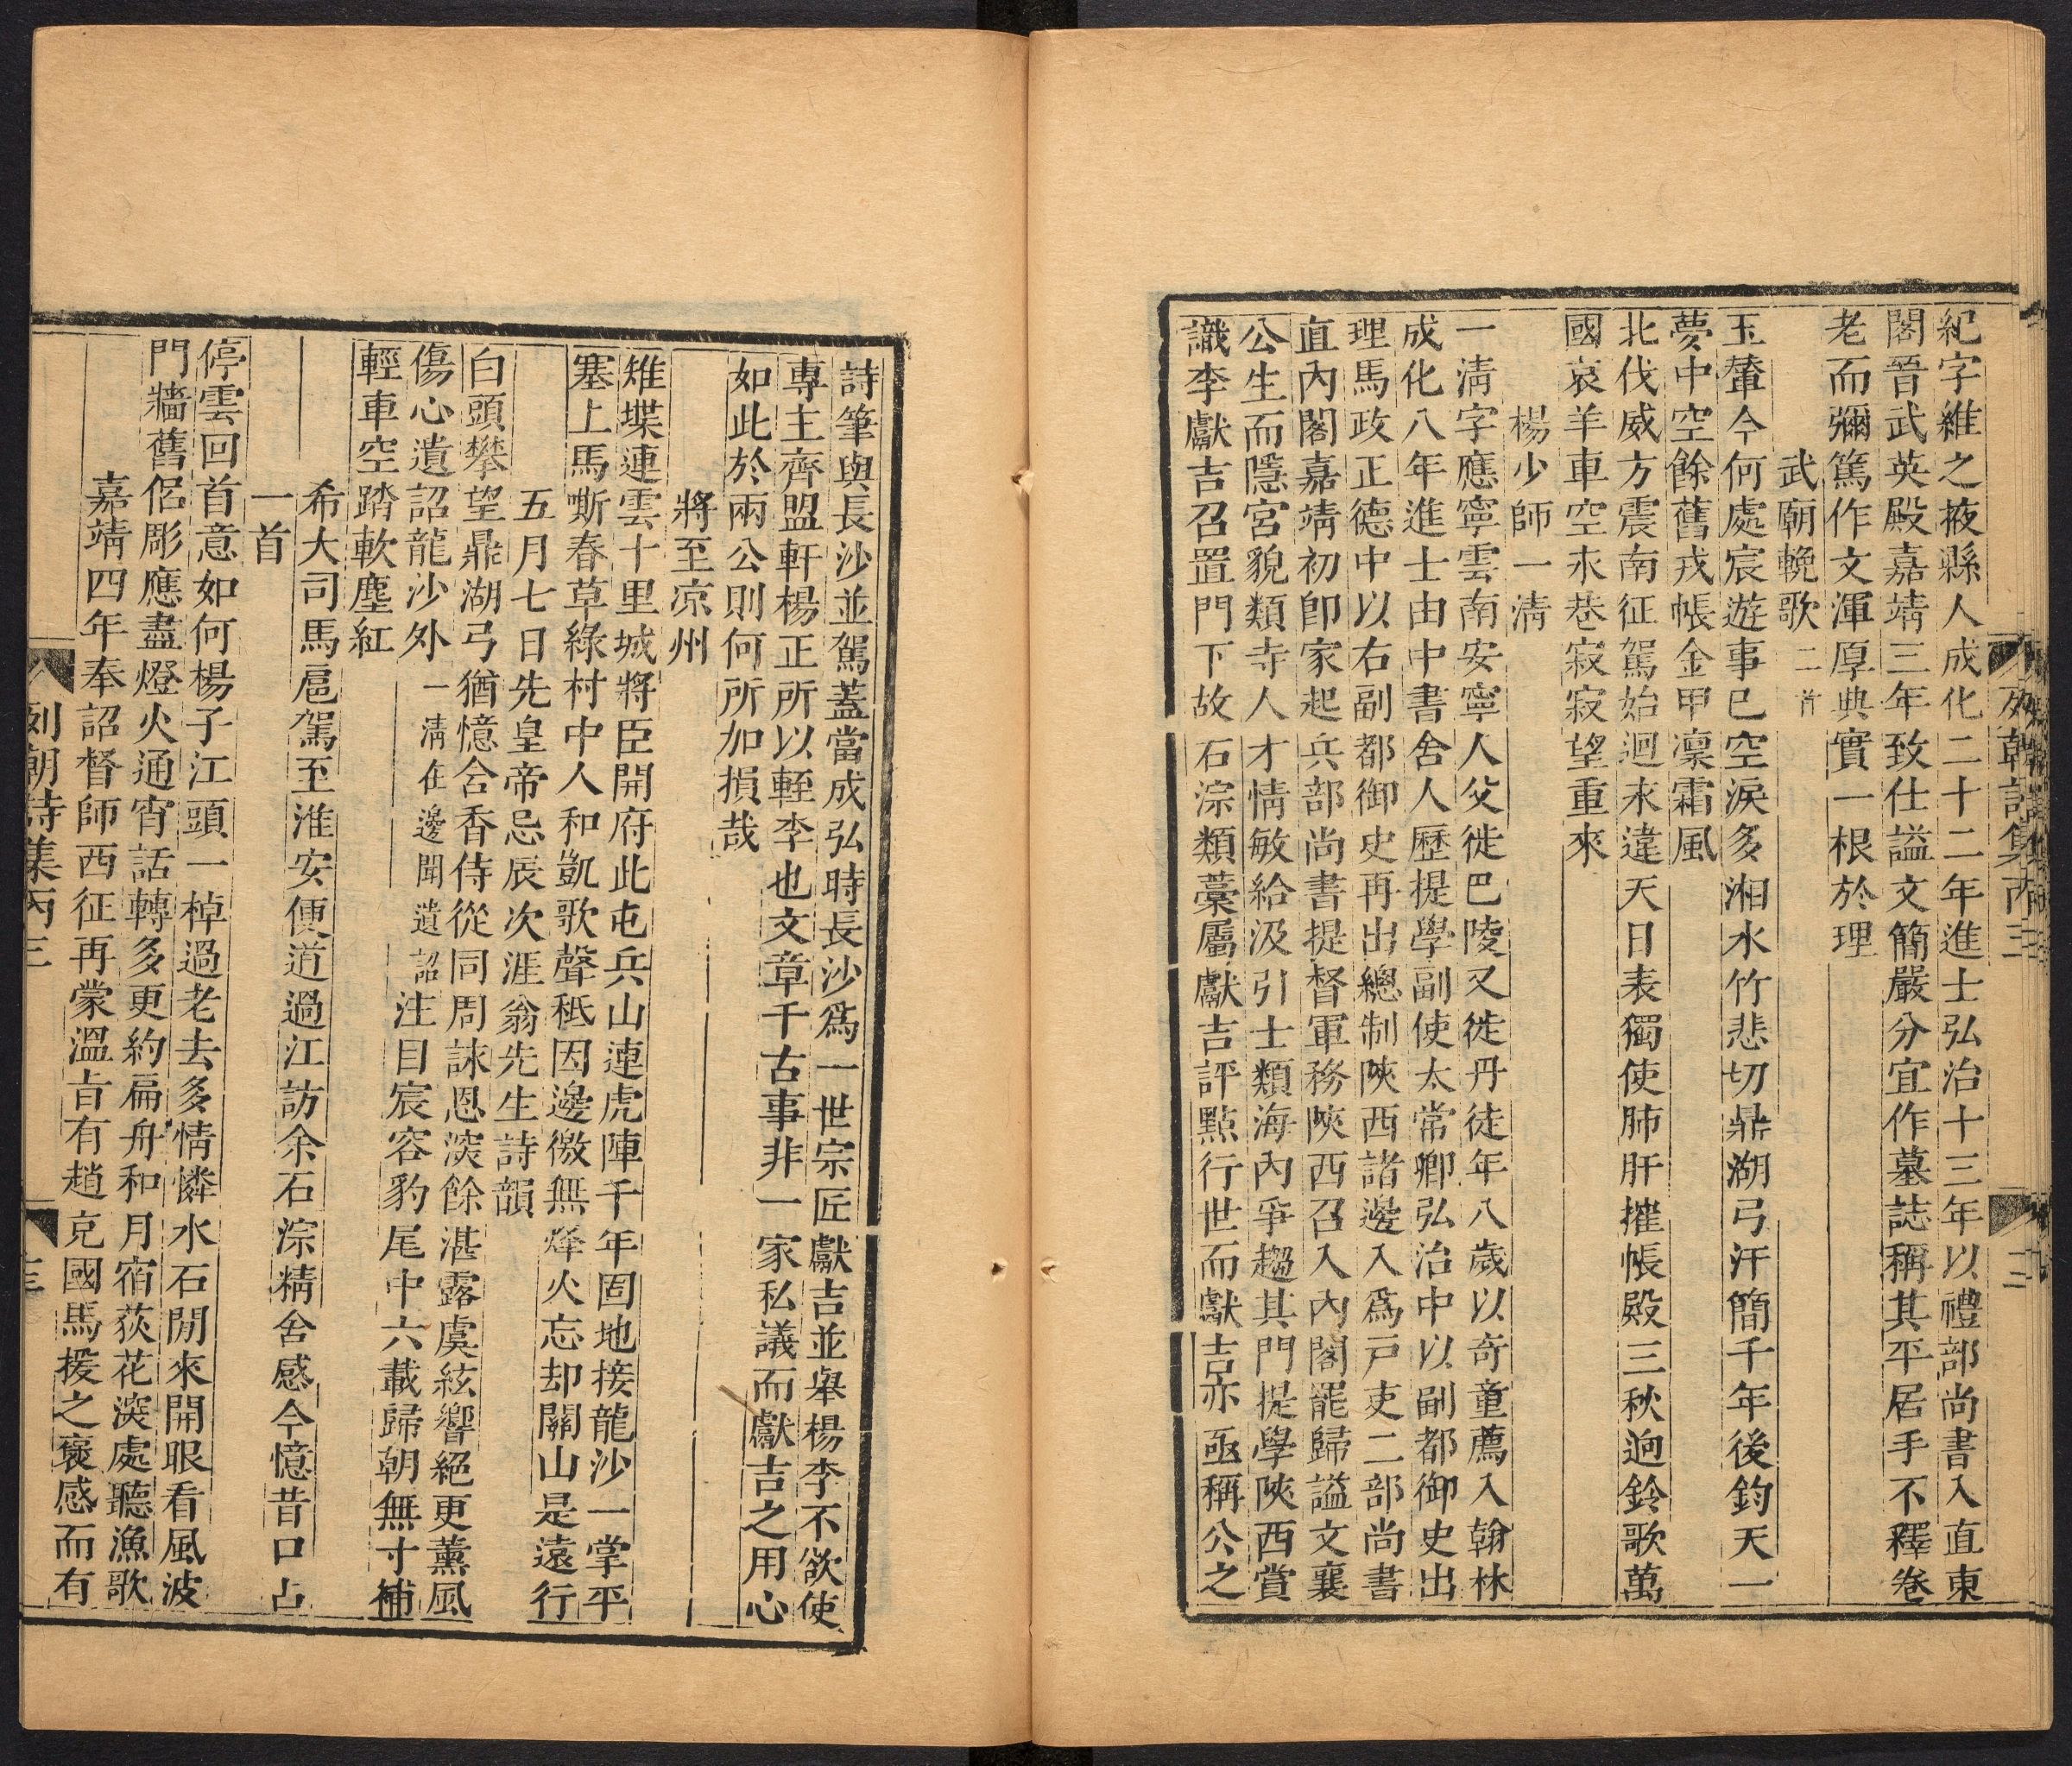 紀字維之掖縣人成化二十二年進士弘治十三年以禮部尚書入直東
閣晉武英殿嘉靖三年致仕謚文簡嚴分宜作墓誌稱其平居手不釋卷
老而彌篤作文渾厚典實一根於理
武廟輓歌二首
玉輦今何處宸遊事已空淚多湘水竹悲切鼎湖弓汗簡千年後鈞天一
夢中空餘舊戎帳金甲凜霜風
北伐威方震南征駕始迴末違天日表獨使肺肝摧帳殿三秋逈鈴歌萬
國哀羊車空永巷寂寂望重來
楊少師一清
一清字應寧雲南安寧人父徙巴陵又徙丹徒年八歲以奇童薦入翰林
成化八年進士由中書舍人歷提學副使太常卿弘治中以副都御史出
理馬政正德中以右副都御史再出總制陝西諸邊入爲戸吏二部尚書
直內閣嘉靖初卽家起兵部尚書提督軍務陝西召入內閣罷歸謚文襄
公生而隱宮貌類寺人才情敏給汲引士類海內爭趨其門提學陝西賞
識李獻吉召置門下故石淙類藁屬獻吉評點行世而獻吉亦亟稱公之
詩筆與長沙並駕蓋當成弘時長沙爲一世宗匠獻吉並舉楊李不欲使
專主齊盟軒楊正所以輊李也文章千古事非一家私議而獻吉之用心
如此於兩公則何所加損哉
將至凉州
雉堞連雲十里城將臣開府此屯兵山連虎陣千年固地接龍沙一掌平
塞上馬嘶春草綠村中人和凱歌聲秪因邊徼無烽火忘却關山是遠行
五月七日先皇帝忌辰次涯翁先生詩韻
白頭攀望鼎湖弓猶憶含香侍從同周誄恩深餘湛露虞絃響絕更薰風
傷心遺詔龍沙外一清在邊聞遺詔注目宸容豹尾中六載歸朝無寸補
輕車空踏軟塵紅
希大司馬扈駕至淮安便道過江訪余石淙精舍感今憶昔口占
一首
停雲回首意如何楊子江頭一棹過老去多情憐水石閒來開眼看風波
門牆舊侶彫應盡燈火通宵話轉多更約扁舟和月宿荻花深處聽漁歌
嘉靖四年奉詔督師西征再蒙溫旨有趙充國馬援之褒感而有
列朝詩集丙三